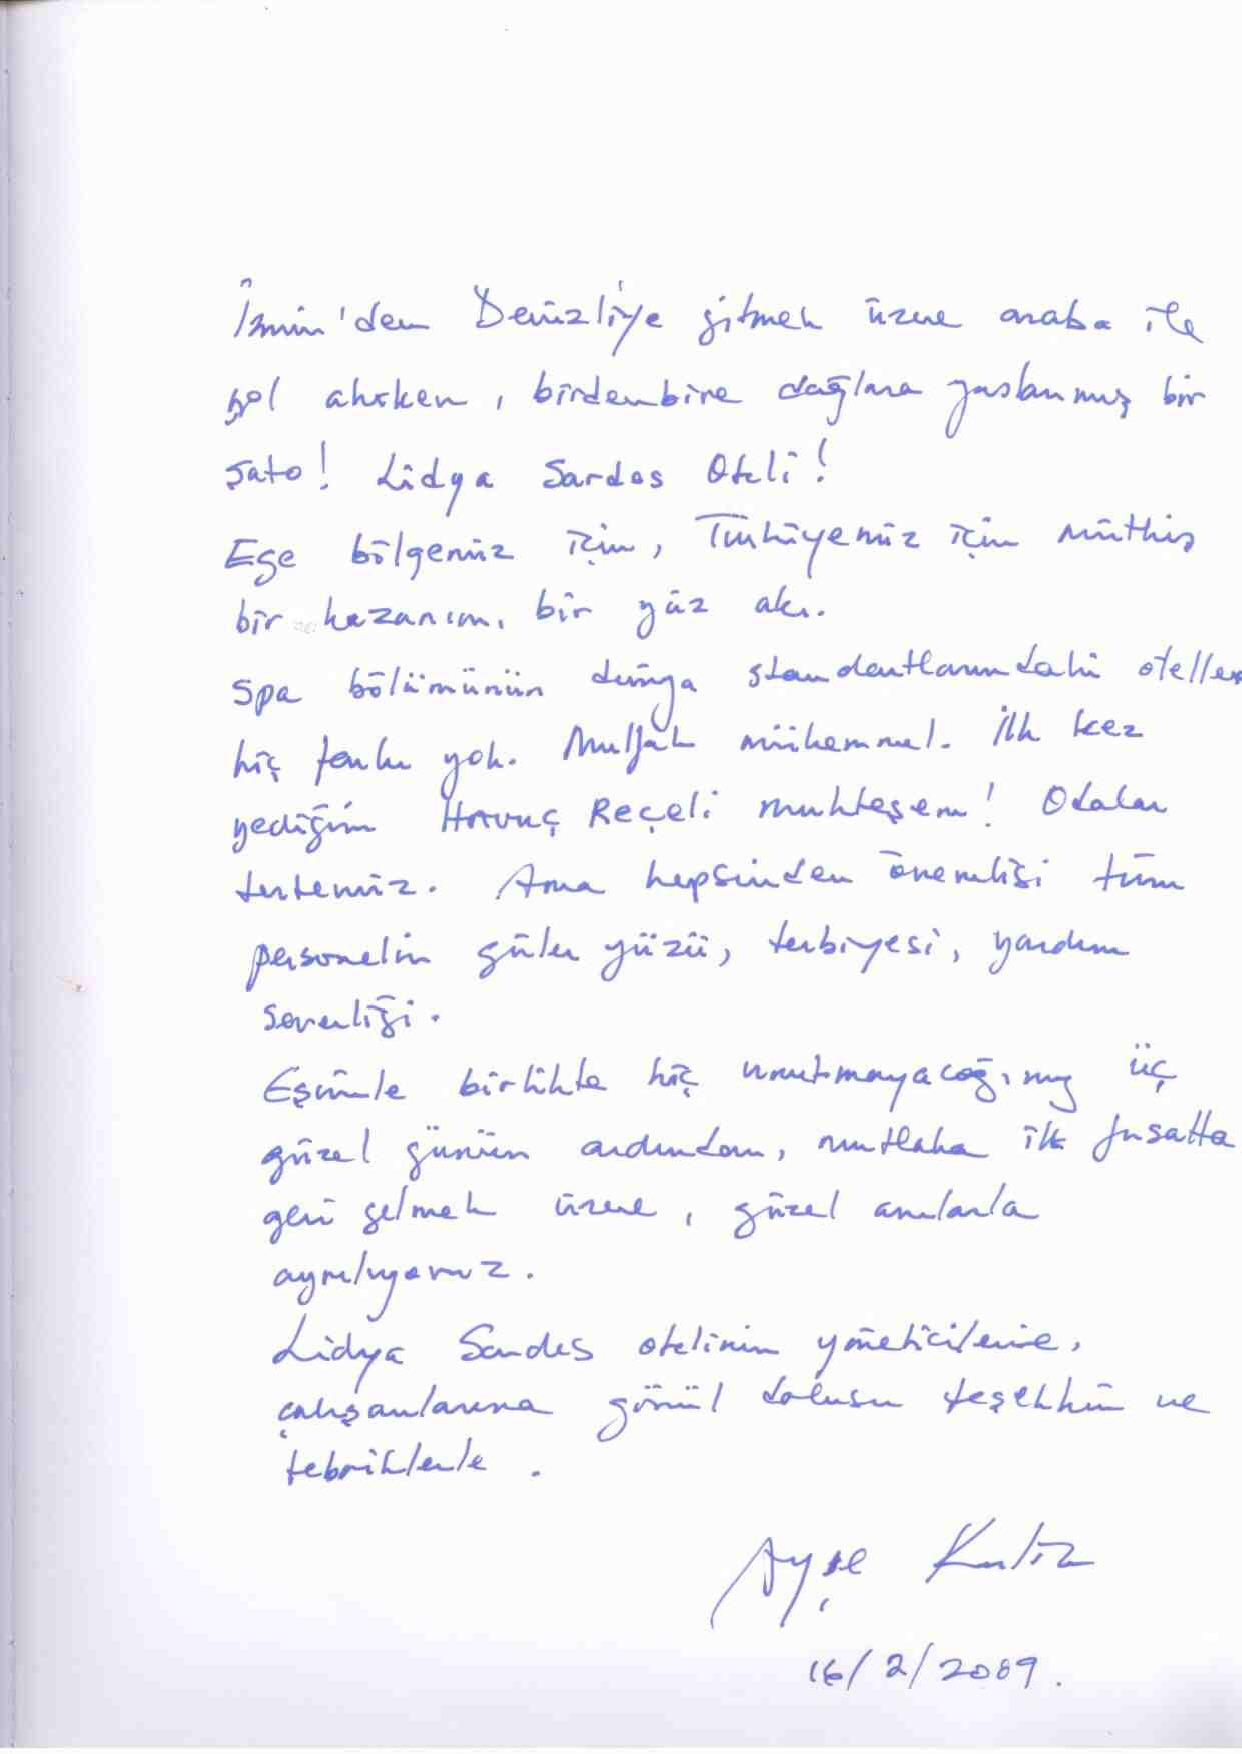 İzmir'den Denizli'ye gitmek üzere araba ile
yol alırken, birdenbire dağlara yaslanmış bir
şato! Lidya Sardes Oteli!
Ege bölgemiz için, Türkiyemiz için müthiş
bir kazanım, bir yüz akı.
Spa bölümünün dünya standartlarındaki otellerden
hiç farkı yok. Mutfak mükemmel. İlk kez
yediğim Havuç Reçeli muhteşem! Odalar
tertemiz. Ama hepsinden önemlisi tüm
personelin güler yüzü, terbiyesi, yardım
severliği.
Eşimle birlikte hiç unutmayacağımız üç
güzel günün ardından, mutlaka ilk fırsatta
geri gelmek üzere, güzel anılarla
ayrılıyoruz.
Lidya Sardes otelinin yöneticilerine,
çalışanlarına gönül dolusu teşekkür ve
tebriklerle.
Ayşe Kulin
16/2/2009.